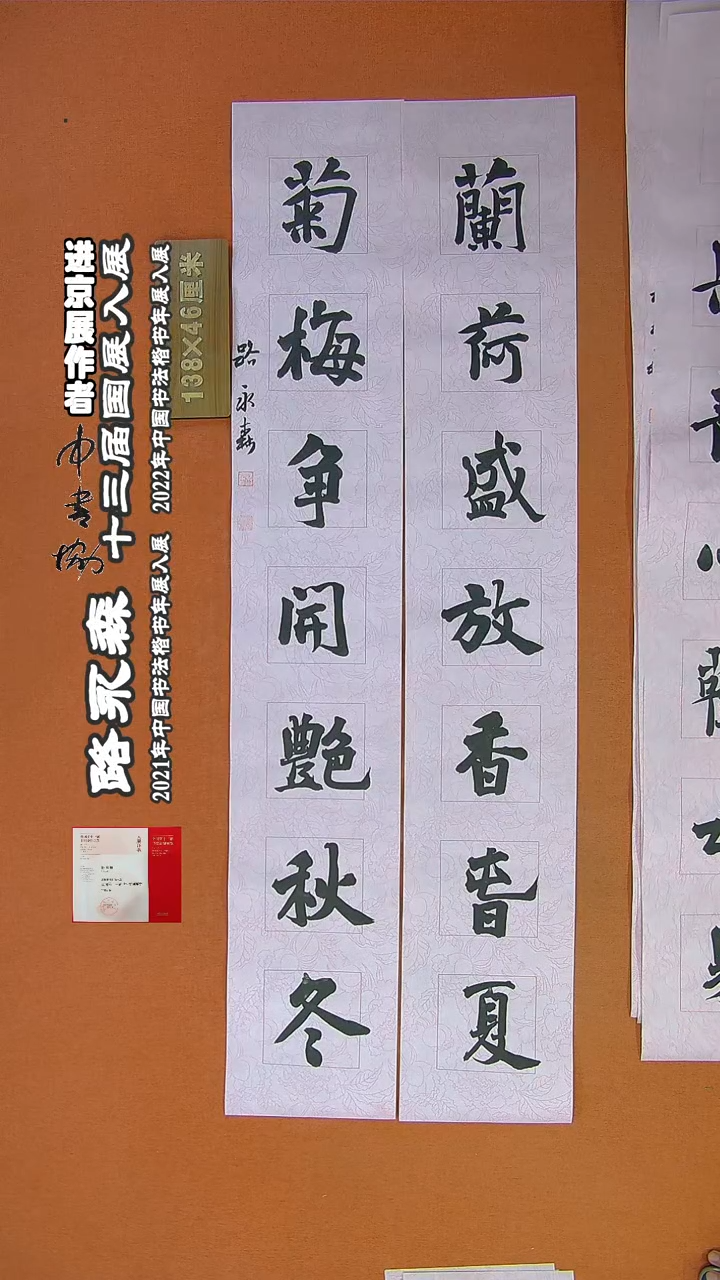 蘭荷盛放香旾夏
菊梅争開艶秋冬
路永森
138×46厘米
进京展作者
中書協
路永森
十三届国展入展
2021年中国书法楷书年展入展 2022年中国书法楷书年展入展